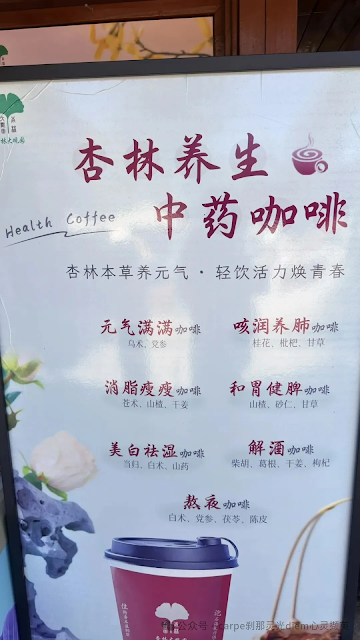 杏林养生
中药咖啡
Health Coffee
杏林本草养元气·轻饮活力焕青春
元气满满咖啡
乌术、党参
咳润养肺咖啡
桂花、枇杷、甘草
消脂瘦瘦咖啡
苍术、山楂、干姜
和胃健脾咖啡
山楂、砂仁、甘草
美白祛湿咖啡
当归、白术、山药
解酒咖啡
柴胡、葛根、干姜、枸杞
熬夜咖啡
白术、党参、茯苓、陈皮